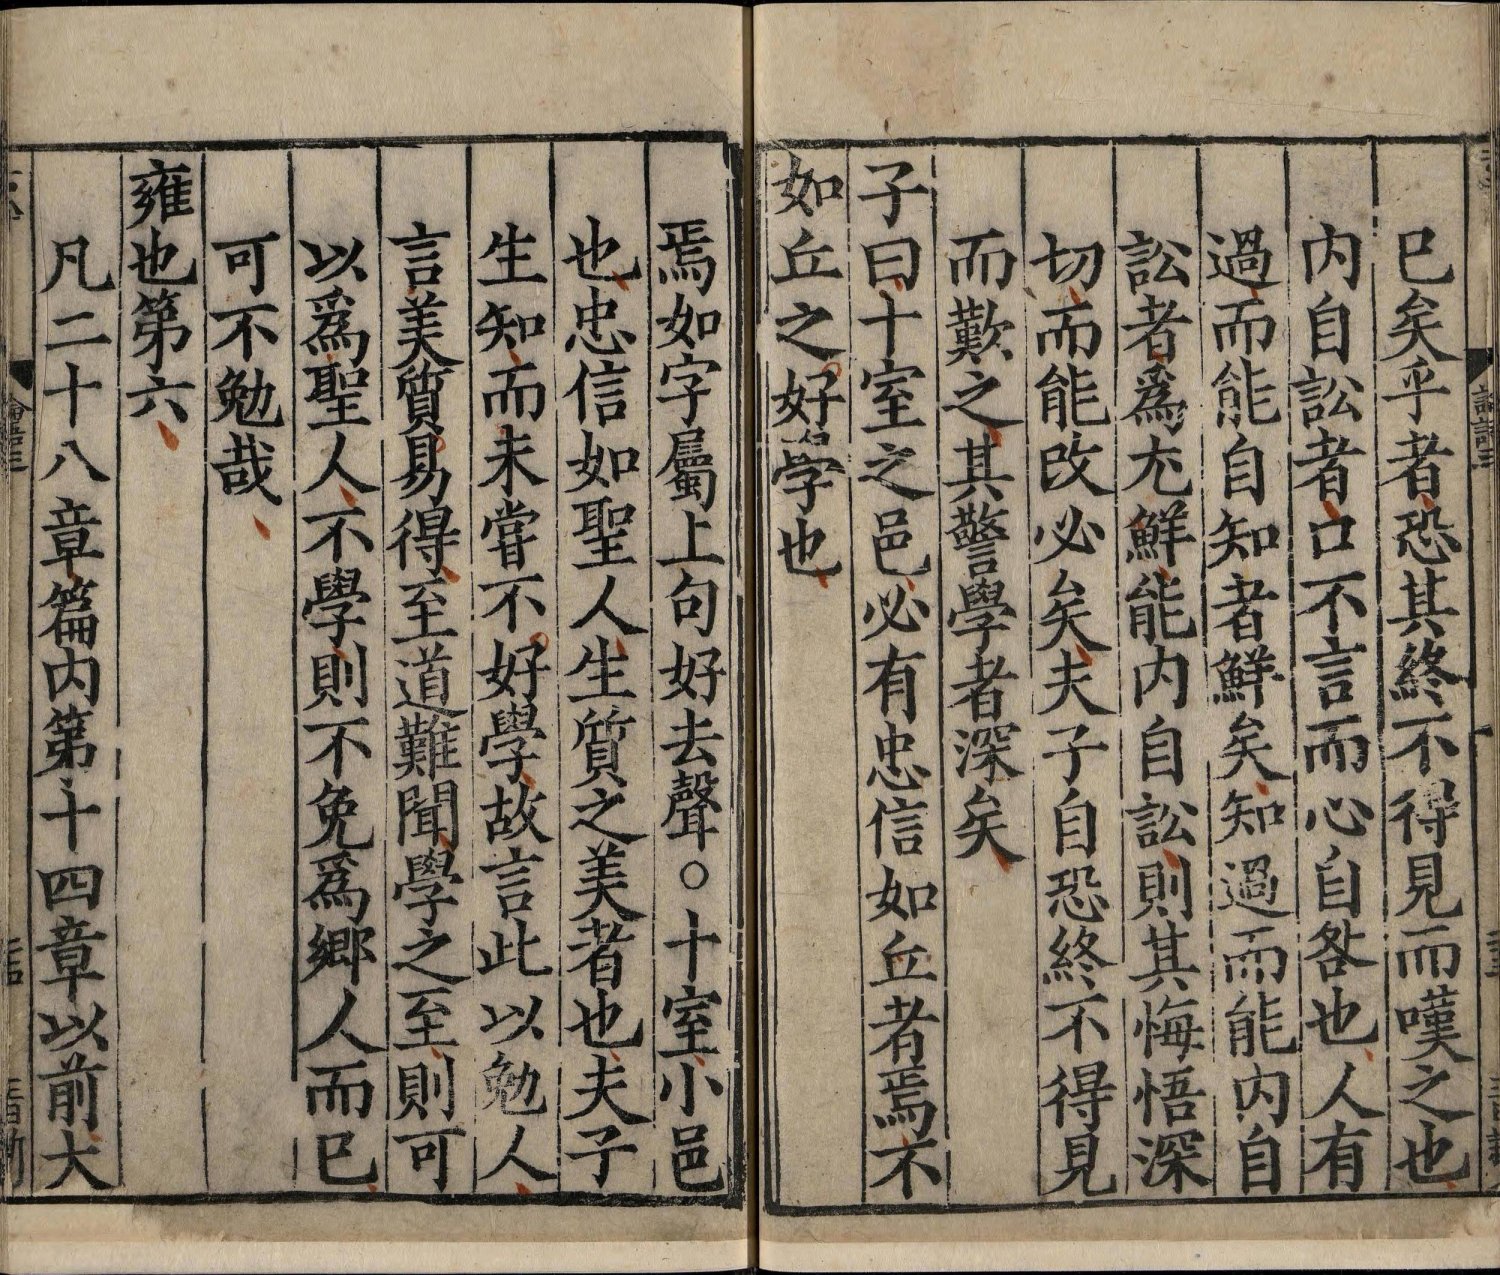 已矣乎者恐其終不得見而嘆之也
内自訟者口不言而心自咎也人有
過而能自知者鮮矣知過而能内自
訟者爲尤鮮能内自訟則其悔悟深
切而能改必矣夫子自恐終不得見
而歎之其警學者深矣
子曰十室之邑必有忠信如丘者焉不
如丘之好學也
焉如字屬上句好去聲○十室小邑
也忠信如聖人生質之美者也夫子
生知而未嘗不好學故言此以勉人
言美質易得至道難聞學之至則可
以爲聖人不學則不免爲鄉人而已
可不勉哉
雍也第六
凡二十八章篇内第十四章以前大